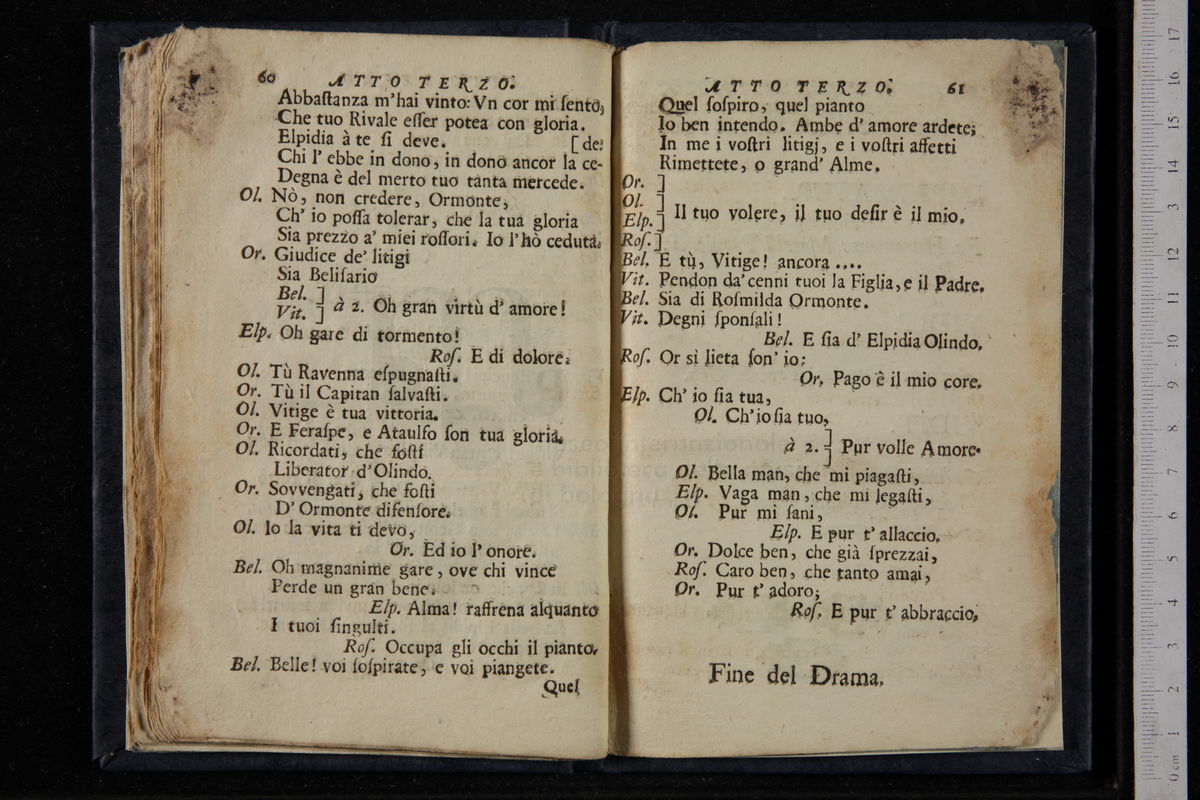 60 ATTO TERZO.
Abbaſtanza m'hai vinto: Vn cor mi ſento,
Che tuo Rivale eſſer potea con gloria.
Elpidia à te ſi deve. [de.
Chi l' ebbe in dono, in dono ancor la ce-
Degna è del merto tuo tanta mercede.
Ol. Nò, non credere, Ormonte,
Ch' io poſſa tolerar, che la tua gloria
Sia prezzo a' miei roſſori. Io l'hò ceduta.
Or. Giudice de' litigi
Sia Beliſario
Bel. ]
Vit. ] à 2. Oh gran virtù d' amore!
Elp. Oh gare di tormento!
Roſ. E di dolore.
Ol. Tù Ravenna eſpugnaſti.
Or. Tù il Capitan ſalvaſti.
Ol. Vitige è tua vittoria.
Or. E Feraſpe, e Ataulfo ſon tua gloria.
Ol. Ricordati, che foſti
Liberator d'Olindo.
Or. Sovvengati, che foſti
D' Ormonte difenſore.
Ol. Io la vita ti devo,
Or. Ed io l' onore.
Bel. Oh magnanime gare, ove chi vince
Perde un gran bene.
Elp. Alma! raffrena alquanto
I tuoi ſingulti.
Roſ. Occupa gli occhi il pianto.
Bel. Belle! voi ſoſpirate, e voi piangete.
Quel
ATTO TERZO. 61
Quel ſoſpiro, quel pianto
Io ben intendo. Ambe d' amore ardete;
In me i voſtri litigj, e i voſtri affetti
Rimettete, o grand' Alme.
Or. ]
Ol. ]
Elp. ] Il tuo volere, il tuo deſir è il mio.
Roſ. ]
Bel. E tù, Vitige! ancora ....
Vit. Pendon da'cenni tuoi la Figlia, e il Padre.
Bel. Sia di Roſmilda Ormonte.
Vit. Degni ſponſali!
Bel. E ſia d' Elpidia Olindo.
Roſ. Or sì lieta ſon' io:
Or. Pago è il mio core.
Elp. Ch' io ſia tua,
Ol. Ch' io ſia tuo,
à 2. ] Pur volle Amore.
Ol. Bella man, che mi piagaſti,
Elp. Vaga man, che mi legaſti,
Ol. Pur mi ſani,
Elp. E pur t' allaccio.
Or. Dolce ben, che già ſprezzai,
Roſ. Caro ben, che tanto amai,
Or. Pur t' adoro;
Roſ. E pur t' abbraccio.
Fine del Drama.